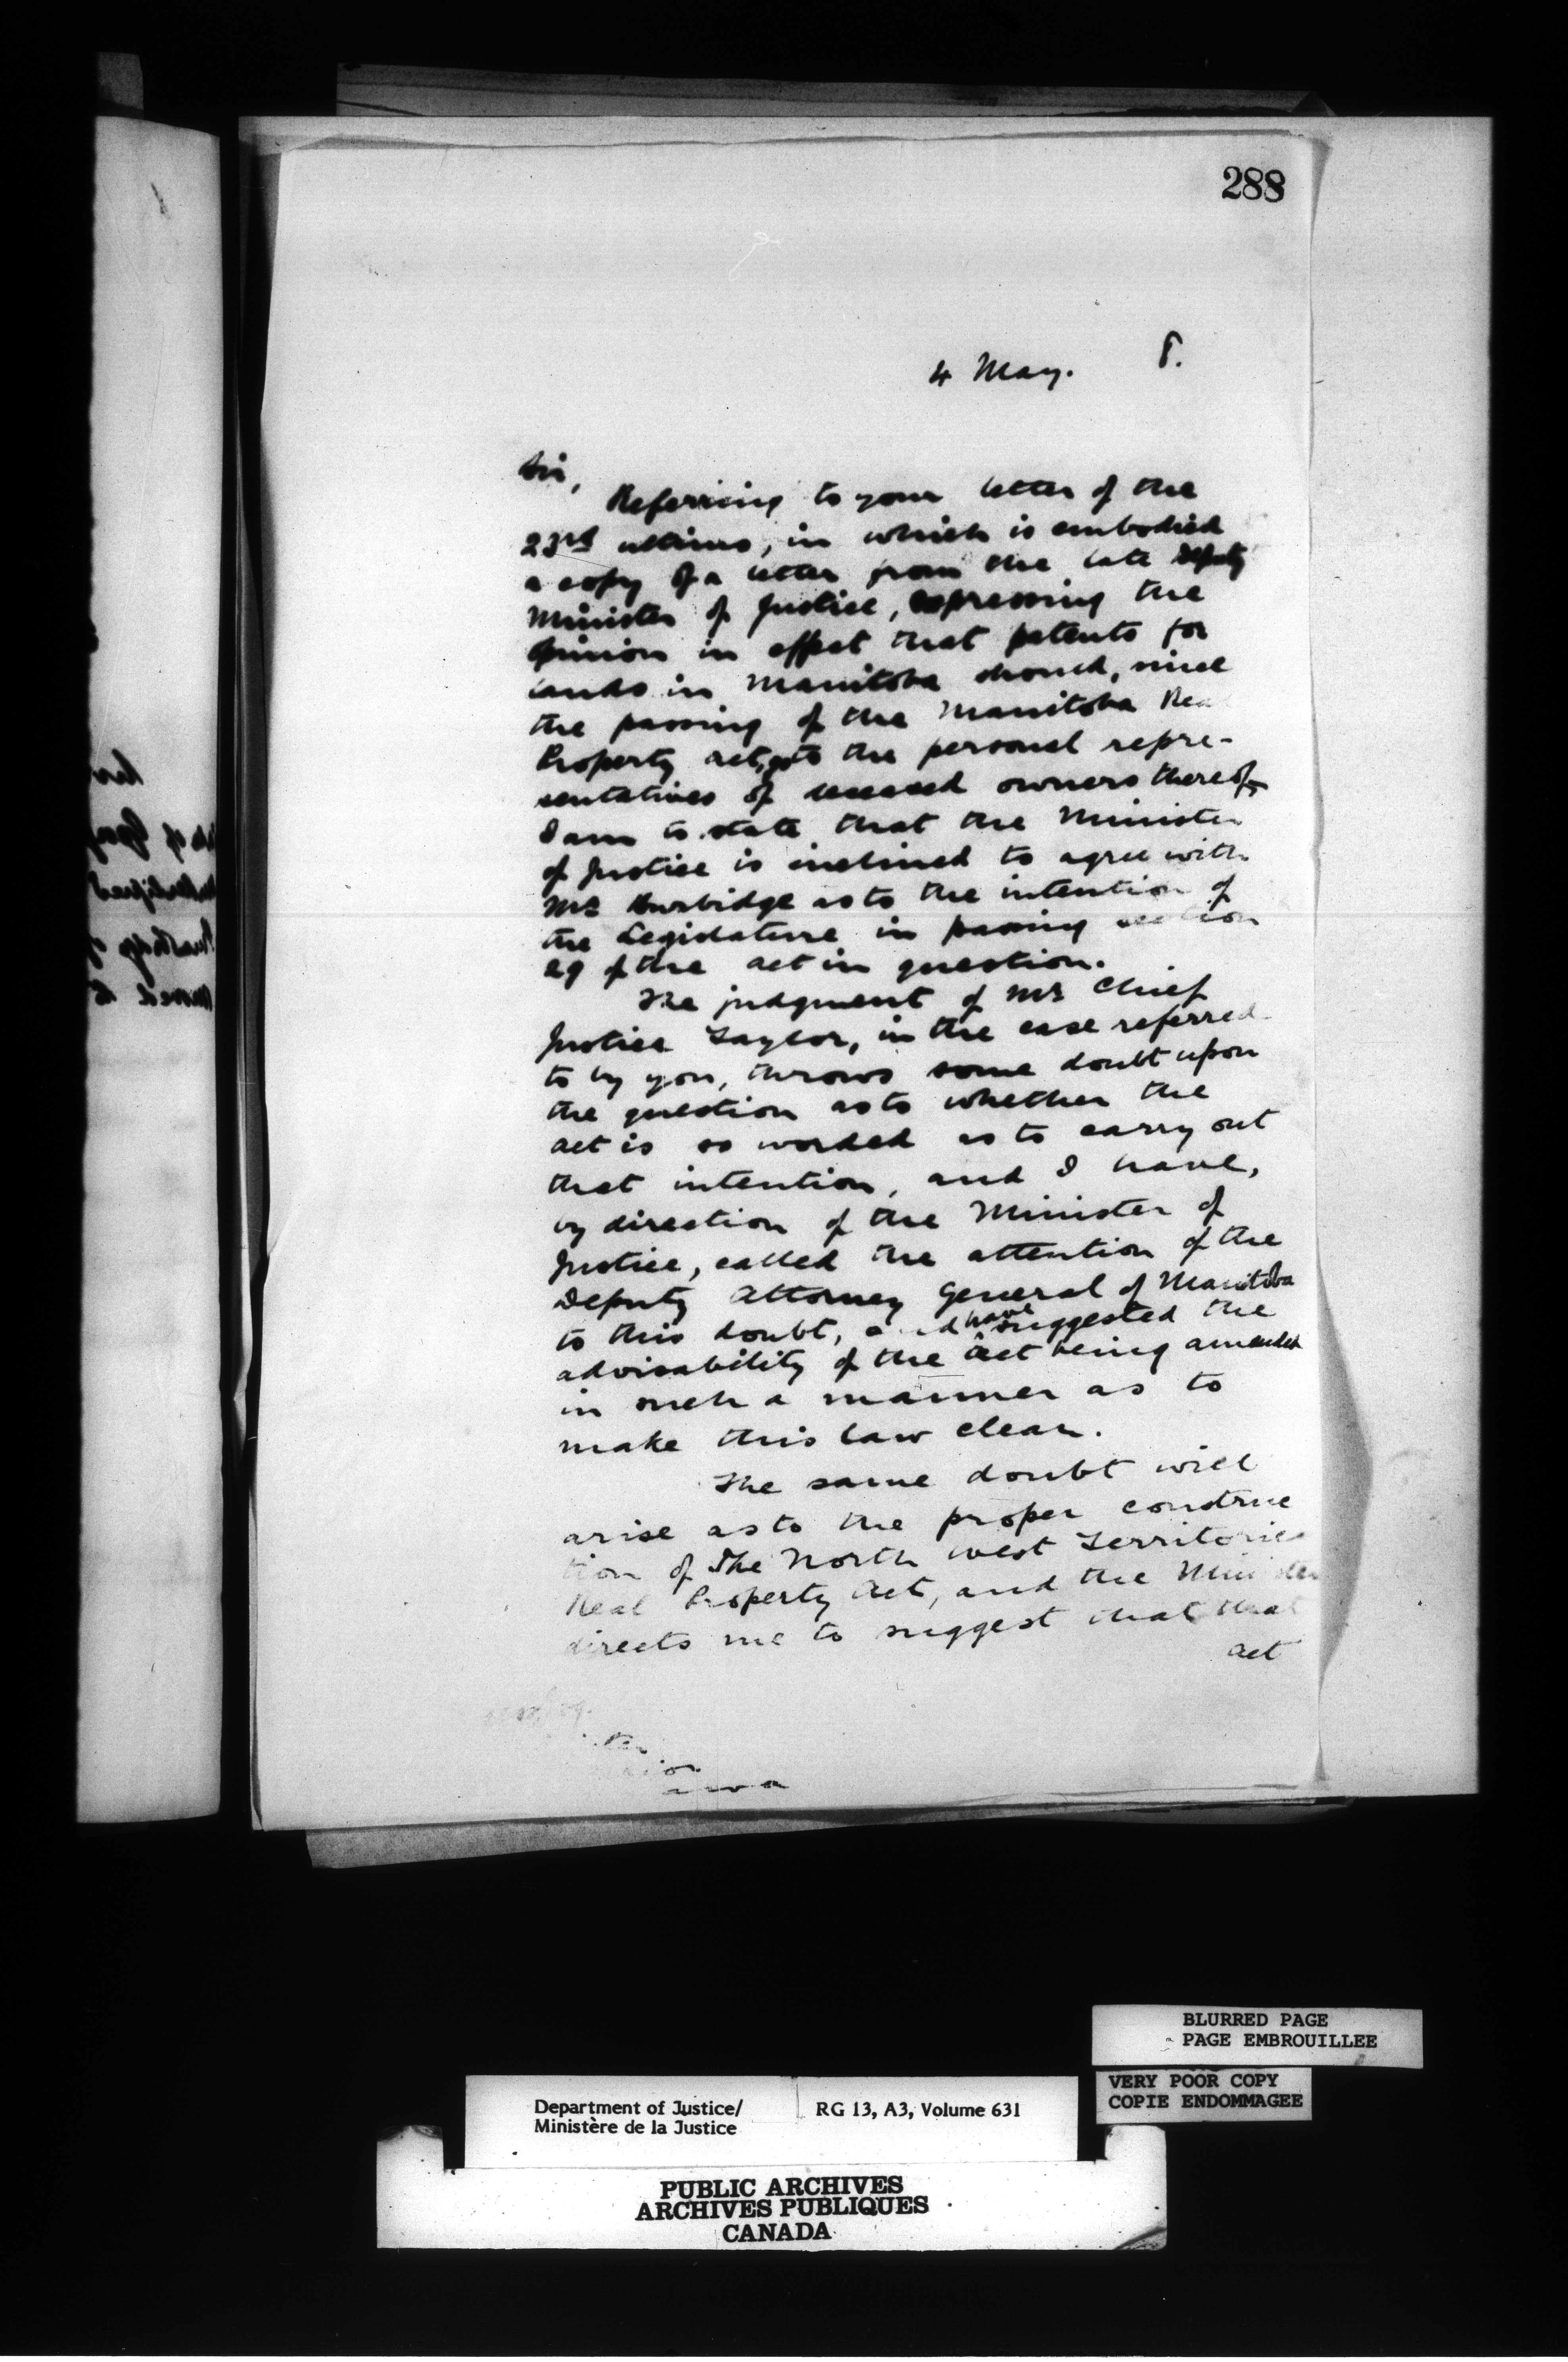 288
4 May. 8.
Sir,
Referring to your letter of the
23rd ultimo, in which is embodied
a copy of a letter from the late Deputy
Minister of Justice, expressing the
opinion in effect that patents for
lands in Manitoba should, since
the passing of the Manitoba Real
Property act, go to the personal repre-
sentatives of deceased owners thereof,
I am to state that the Minister
of Justice is inclined to agree with
Mr Burbidge as to the intention of
the Legislature in passing section
29 of the act in question.
The judgment of Mr Chief
Justice Taylor, in the case referred
to by you, throws some doubt upon
the question as to whether the
act is so worded as to carry out
that intention, and I have,
by direction of the Minister of
Justice, called the attention of the
Deputy Attorney General of Manitoba
to this doubt, and have suggested the
advisability of the Act being amended
in such a manner as to
make this law clear.
The same doubt will
arise as to the proper construc
tion of The North West Territories
Real Property Act, and the Minister
directs me to suggest that that
act
BLURRED PAGE
PAGE EMBROUILLEE
VERY POOR COPY
COPIE ENDOMMAGEE
Department of Justice/ RG 13, A3, Volume 631
Ministère de la Justice
PUBLIC ARCHIVES
ARCHIVES PUBLIQUES
CANADA